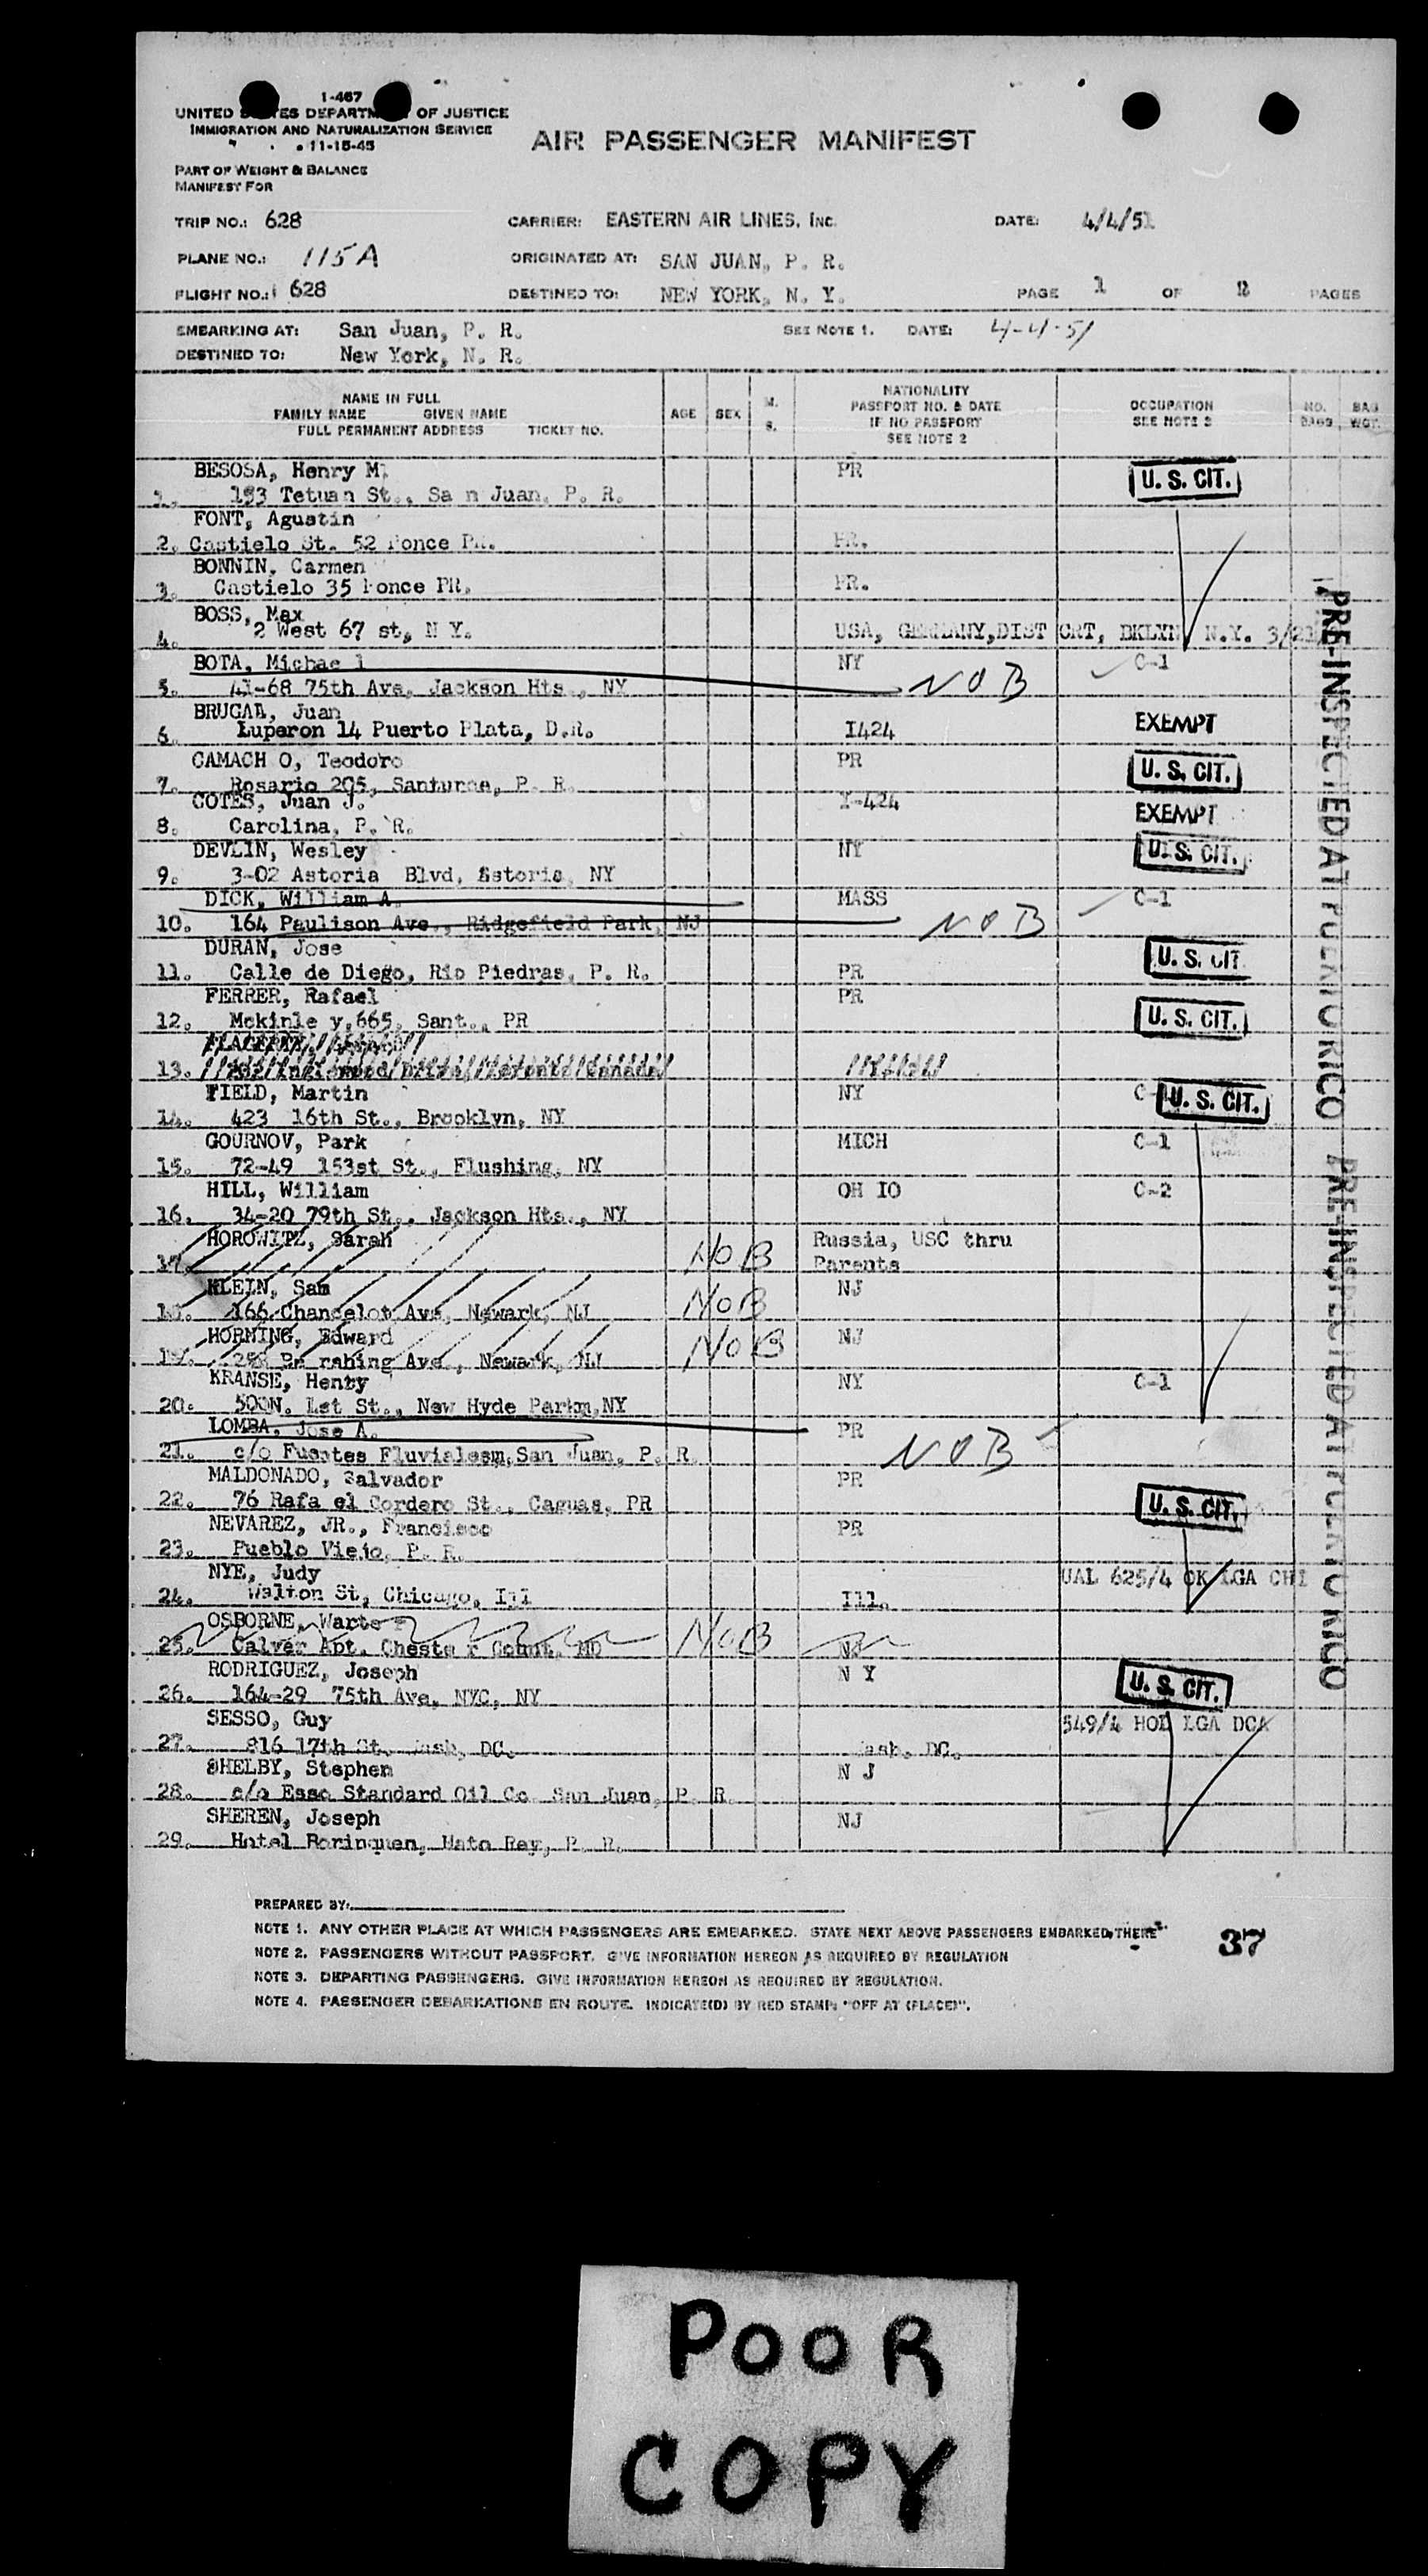 I-467
UNITED STATES DEPARTMENT OF JUSTICE
IMMIGRATION AND NATURALIZATION SERVICE
11-15-45
AIR PASSENGER MANIFEST
PART OF WEIGHT & BALANCE
MANIFEST FOR
TRIP NO.: 628 CARRIER: EASTERN AIR LINES, INC. DATE: 4/4/51
PLANE NO.: 115A ORIGINATED AT: SAN JUAN, P. R.
FLIGHT NO.: 628 DESTINED TO: NEW YORK, N. Y. PAGE 1 OF 2 PAGES
EMBARKING AT: San Juan, P. R. SEE NOTE 1. DATE: 4-4-51
DESTINED TO: New York, N. R.
NAME IN FULL
FAMILY NAME GIVEN NAME
FULL PERMANENT ADDRESS TICKET NO.
AGE SEX M. S.
NATIONALITY
PASSPORT NO. & DATE
IF NO PASSPORT
SEE NOTE 2
OCCUPATION
SEE NOTE 3
NO. BAGS
BAG WGT.
BESOSA, Henry M. PR U. S. CIT.
1. 153 Tetuan St., Sa n Juan, P. R.
FONT, Agustin
2. Castielo St. 52 Ponce PR. PR.
BONNIN, Carmen
3. Castielo 35 Ponce PR. PR.
BOSS, Max
4. 2 West 67 st, N Y. USA, GERMANY,DIST CRT, BKLYN N.Y. 3/21
BOTA, Michae l NY C-1
5. 41-68 75th Ave, Jackson Hts., NY NOB
BRUGAL, Juan
6. Luperon 14 Puerto Plata, D.R. I424 EXEMPT
CAMACH O, Teodoro PR U. S. CIT.
7. Rosario 205, Santurce, P. R.
COTES, Juan J. I-424 EXEMPT
8. Carolina, P. R.
DEVLIN, Wesley NY U. S. CIT.
9. 3-02 Astoria Blvd, Astoria, NY
DICK, William A. MASS C-1
10. 164 Paulison Ave., Ridgefield Park, NJ NOB
DURAN, Jose U. S. CIT
11. Calle de Diego, Rio Piedras, P. R. PR
FERRER, Rafael PR
12. Mckinle y,665, Sant., PR U. S. CIT.
13.
FIELD, Martin NY C-1 U. S. CIT.
14. 423 16th St., Brooklyn, NY
GOURNOV, Park MICH C-1
15. 72-49 153st St., Flushing, NY
HILL, William OH IO C-2
16. 34-20 79th St., Jackson Hts., NY
HOROWITZ, Sarah NOB Russia, USC thru
17. Parents
KLEIN, Sam NJ
18. 166 Chancelot Ave, Newark, NJ NOB
HORMING, Edward NOB NJ
19. Pe rshing Ave., Newark, NJ
KRANSE, Henry NY C-1
20. 500N. 1st St., New Hyde Parkm,NY
LOMBA, Jose A. PR
21. c/o Fuentes Fluvialesm,San Juan, P. R. NOB
MALDONADO, Salvador PR
22. 76 Rafa el Cordero St., Caguas, PR U. S. CIT.
NEVAREZ, JR., Francisco PR
23. Pueblo Viejo, P. R.
NYE, Judy UAL 625/4 OK LGA CHI
24. Walton St, Chicago, Ill Ill.
OSBORNE, Warte
25. Calver Apt. Cheste r Count, MD NOB NJ
RODRIGUEZ, Joseph N Y U. S. CIT.
26. 164-29 75th Ave, NYC, NY
SESSO, Guy 549/4 HOL LGA DCA
27. 816 17th St. Wash, DC. Wash, DC.
SHELBY, Stephen N J
28. c/o Esso Standard Oil Co San Juan, P. R.
SHEREN, Joseph NJ
29. Hotel Borinquen, Hato Rey, P. R.
PRE-INSPECTED AT PUERTO RICO
PRE-INSPECTED AT PUERTO RICO
PREPARED BY:
NOTE 1. ANY OTHER PLACE AT WHICH PASSENGERS ARE EMBARKED. STATE NEXT ABOVE PASSENGERS EMBARKED THERE
NOTE 2. PASSENGERS WITHOUT PASSPORT. GIVE INFORMATION HEREON AS REQUIRED BY REGULATION
NOTE 3. DEPARTING PASSENGERS. GIVE INFORMATION HEREON AS REQUIRED BY REGULATION.
NOTE 4. PASSENGER DEBARKATIONS EN ROUTE. INDICATE(D) BY RED STAMP: "OFF AT (PLACE)".
37
POOR
COPY